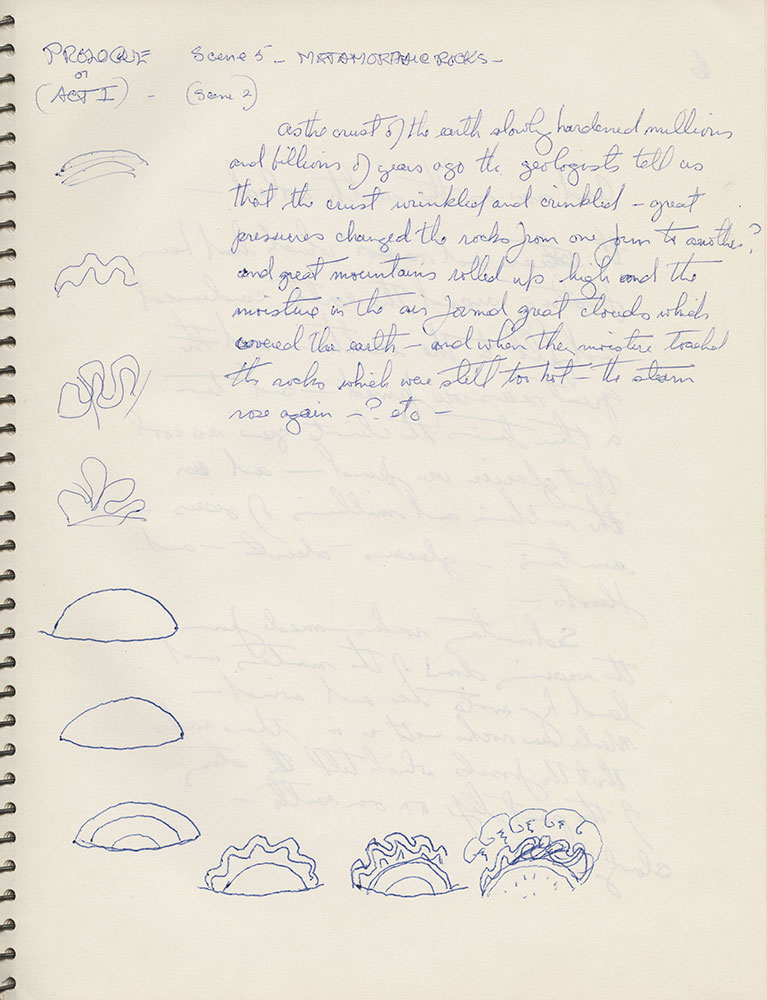 PROLOGUE Scene 5 - METAMORPHIC ROCKS -
or
(ACT I) - (Scene 2)
as the crust of the earth slowly hardened millions
and billions of years ago the geologists tell us
that the crust wrinkled and crinkled - great
pressures changed the rocks from one form to another?
and great mountains rolled up high and the
moisture in the air formed great clouds which
covered the earth - and when the moisture touched
the rocks which were still too hot - the steam
rose again - ? etc -